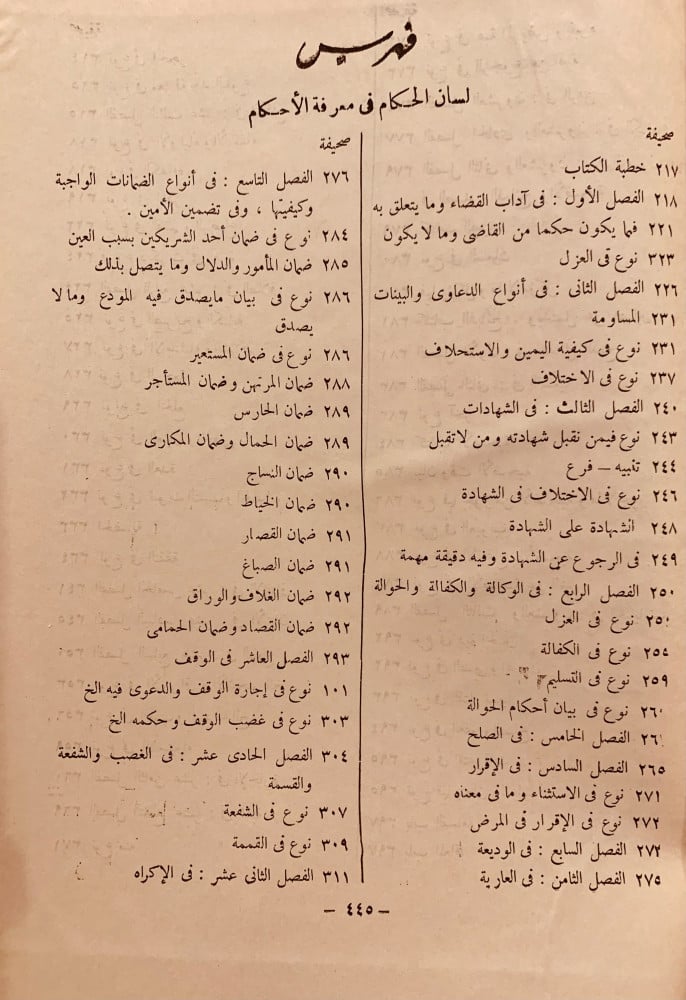 فهرس
لسان الحكام فى معرفة الأحكام
صحيفة
٢١٧ خطبة الكتاب
٢١٨ الفصل الأول : فى آداب القضاء وما يتعلق به
٢٢١ فيما يكون حكما من القاضى وما لا يكون
٣٢٣ نوع فى العزل
٢٢٦ الفصل الثانى : فى أنواع الدعاوى والبينات
٢٣١ المساومة
٢٣١ نوع فى كيفية اليمين والاستحلاف
٢٣٧ نوع فى الاختلاف
٢٤٠ الفصل الثالث : فى الشهادات
٢٤٣ نوع فيمن نقبل شهادته ومن لاتقبل
٢٤٤ تنبيه – فرع
٢٤٦ نوع فى الاختلاف فى الشهادة
٢٤٨ الشهادة على الشهادة
٢٤٩ فى الرجوع عن الشهادة وفيه دقيقة مهمة
٢٥٠ الفصل الرابع : فى الوكالة والكفالة والحوالة
نوع فى العزل
نوع فى الكفالة
٢٥٩ نوع فى التسليم
نوع فى بيان أحكام الحوالة
الفصل الخامس : فى الصلح
٢٦٥ الفصل السادس : فى الإقرار
٢٧١ نوع فى الاستثناء وما فى معناه
٢٧٢ نوع فى الإقرار فى المرض
٢٧٢ الفصل السابع : فى الوديعة
٢٧٥ الفصل الثامن : فى العارية
صحيفة
٢٧٦ الفصل التاسع : فى أنواع الضمانات الواجبة
وكيفيتها ، وفى تضمين الأمين .
٢٨٤ نوع فى ضمان أحد الشريكين بسبب العين
٢٨٥ ضمان المأمور والدلال وما يتصل بذلك
٢٨٦ نوع فى بيان مايصدق فيه المودع ومالا
يصدق
٢٨٦ نوع فى ضمان المستعير
٢٨٨ ضمان المرتهن وضمان المستأجر
٢٨٩ ضمان الحارس
٢٨٩ ضمان الحمال وضمان المكارى
٢٩٠ ضمان النساج
٢٩٠ ضمان الخياط
٢٩١ ضمان القصار
٢٩١ ضمان الصباغ
٢٩٢ ضمان الغلاف والوراق
٢٩٢ ضمان القصاد وضمان الحمامى
٢٩٣ الفصل العاشر فى الوقف
١٠١ نوع فى إجارة الوقف والدعوى فيه الخ
٣٠٣ نوع فى غضب الوقف وحكمه الخ
٣٠٤ الفصل الحادى عشر : فى الغصب والشفعة
والقسمة
٣٠٧ نوع فى الشفعة
٣٠٩ نوع فى القممة
٣١١ الفصل الثانى عشر : فى الإكراه
– ٤٤٥ –